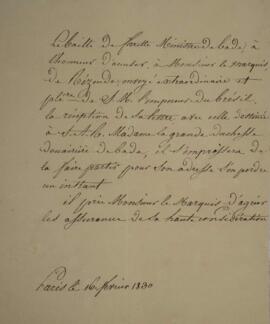 Le baille de ferette Ministre de bade, à
l'honneur d'accuser, à Monsieur le marquis
de Rézende, envoyé extraordinaire et
plére de S. M. l'empereur du brésil,
la réception de sa lettre avec celle destinée
à S. A. R. Madame la grande duchesse
douairière de bade, il s'empressera de
la faire partir pour son adresse sans perdre
un instant
il prie Monsieur le Marquis d'agréer
les assurances de sa haute considération
Paris le 16 février 1830